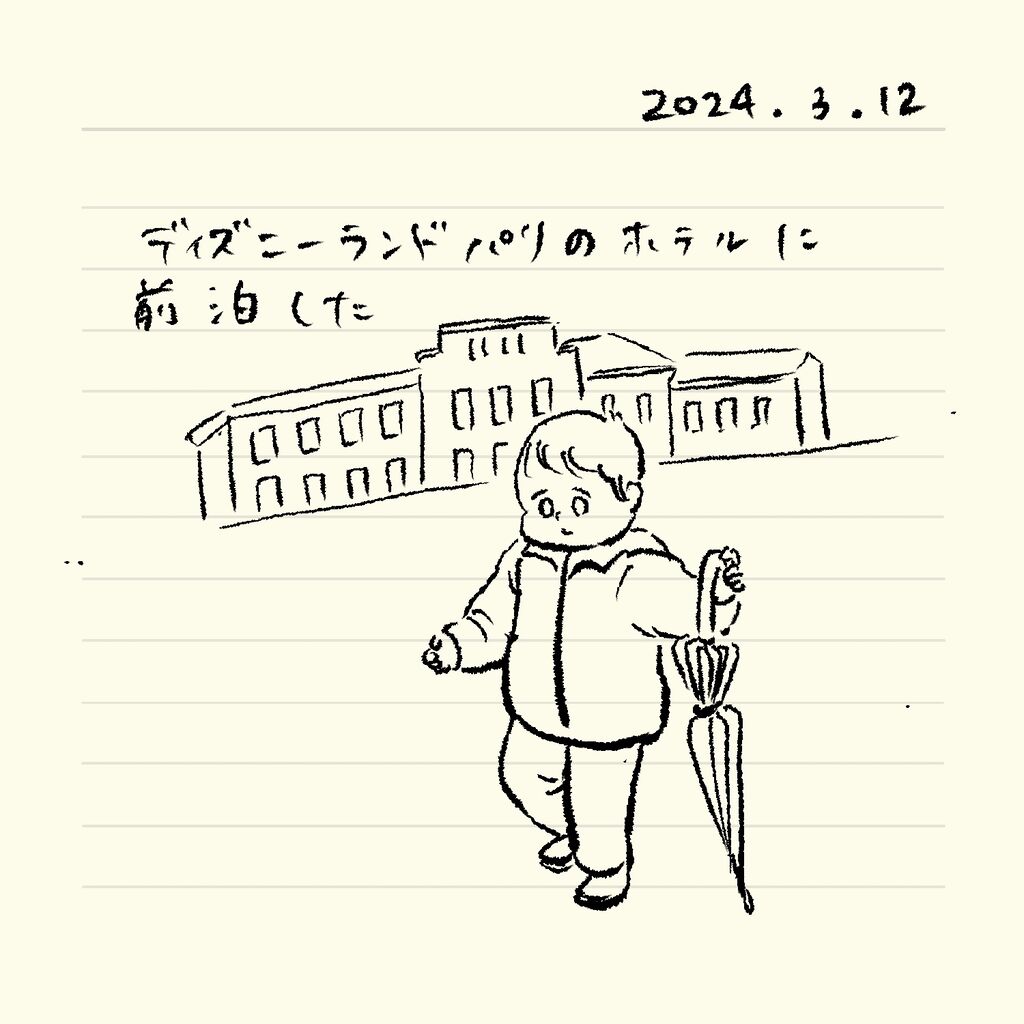 2024.3.12
ディズニーランドパリのホテルに
前泊した